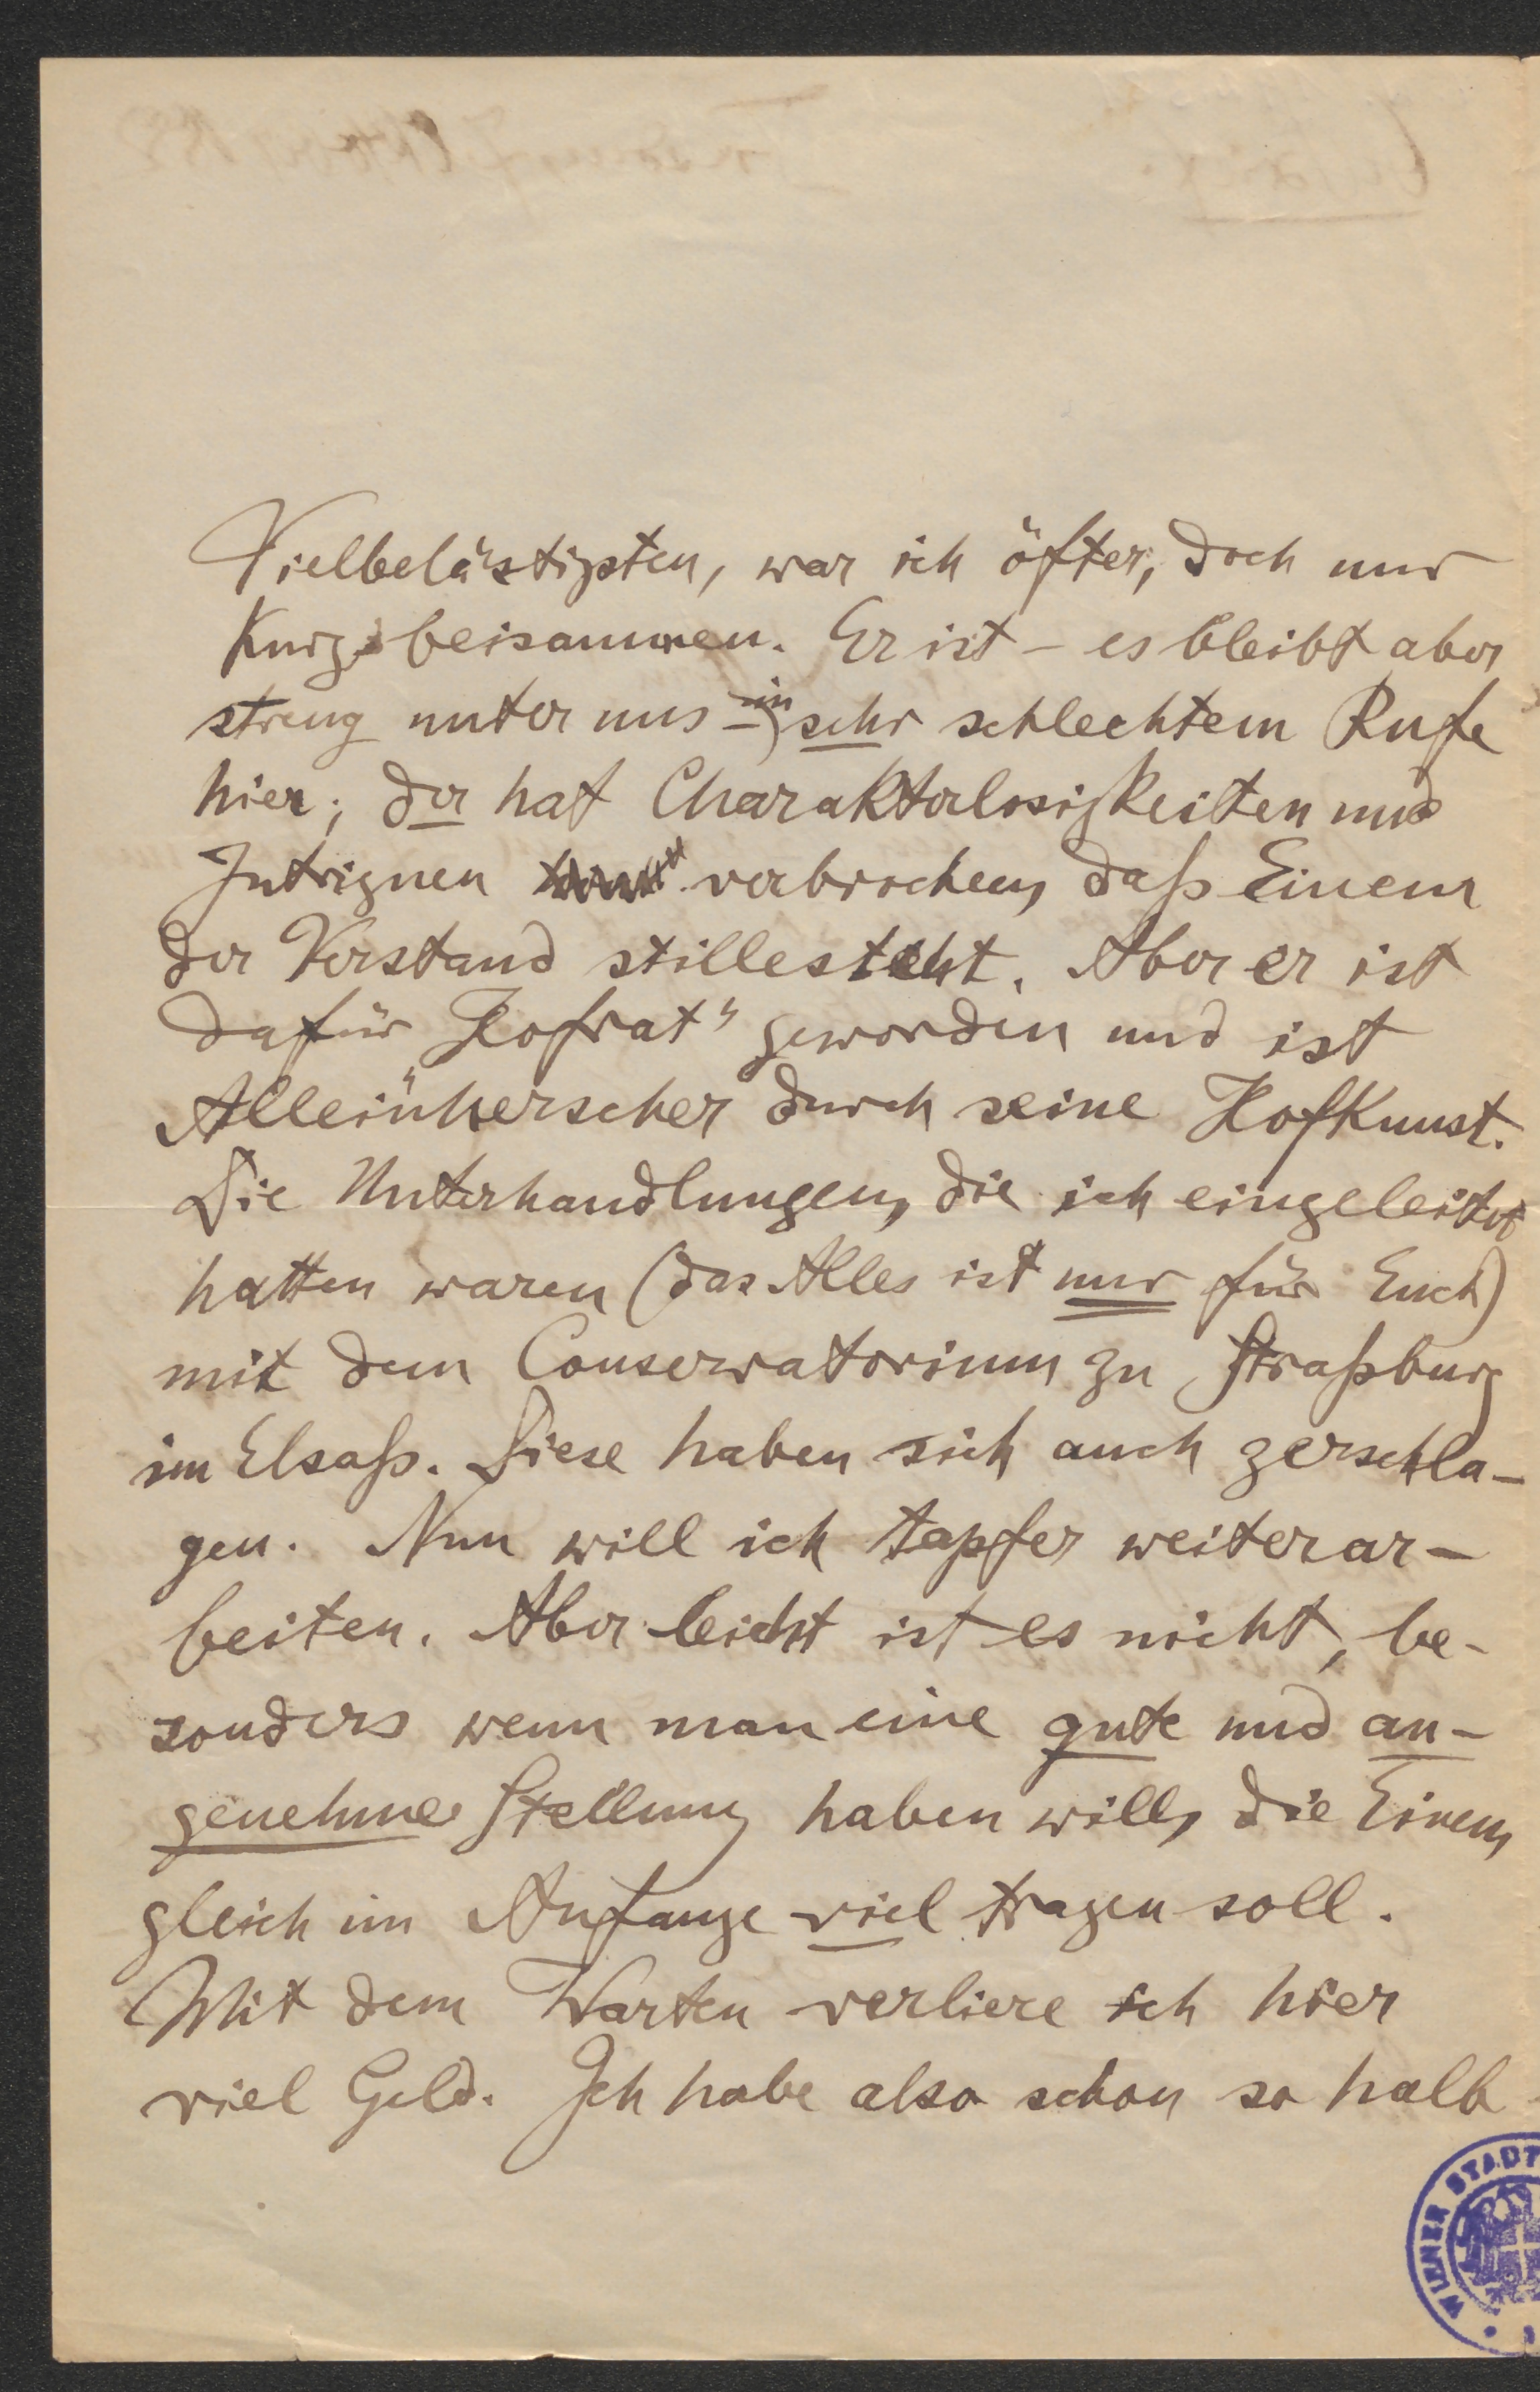 Vielbelästigsten, war ich öfter, doch nur
Kurz beisammen. Er ist – es bleibt aber
streng unter uns – in sehr schlechtem Rufe
hier; der hat Charakterlosigkeiten und
Intriguen verbrochen, daß Einem
der Verstand stillesteht. Aber er ist
dafür „Hofrat" geworden und ist
Alleinherscher durch seine HofKunst.
Die Unterhandlungen, die ich eingeleitet
hatten waren (das Alles ist nur für Euch)
mit dem Conservatorium zu Straßburg
im Elsaß. Diese haben sich auch zerschla-
gen. Nun will ich tapfer weiterar-
beiten. Aber leicht ist es nicht, be-
sonders wenn man eine gute und an-
genehme Stellung haben will, die Einem
gleich im Anfange viel tragen soll.
Mit dem Warten verliere ich hier
viel Geld. Ich habe also schon so halb
WIENER STADT